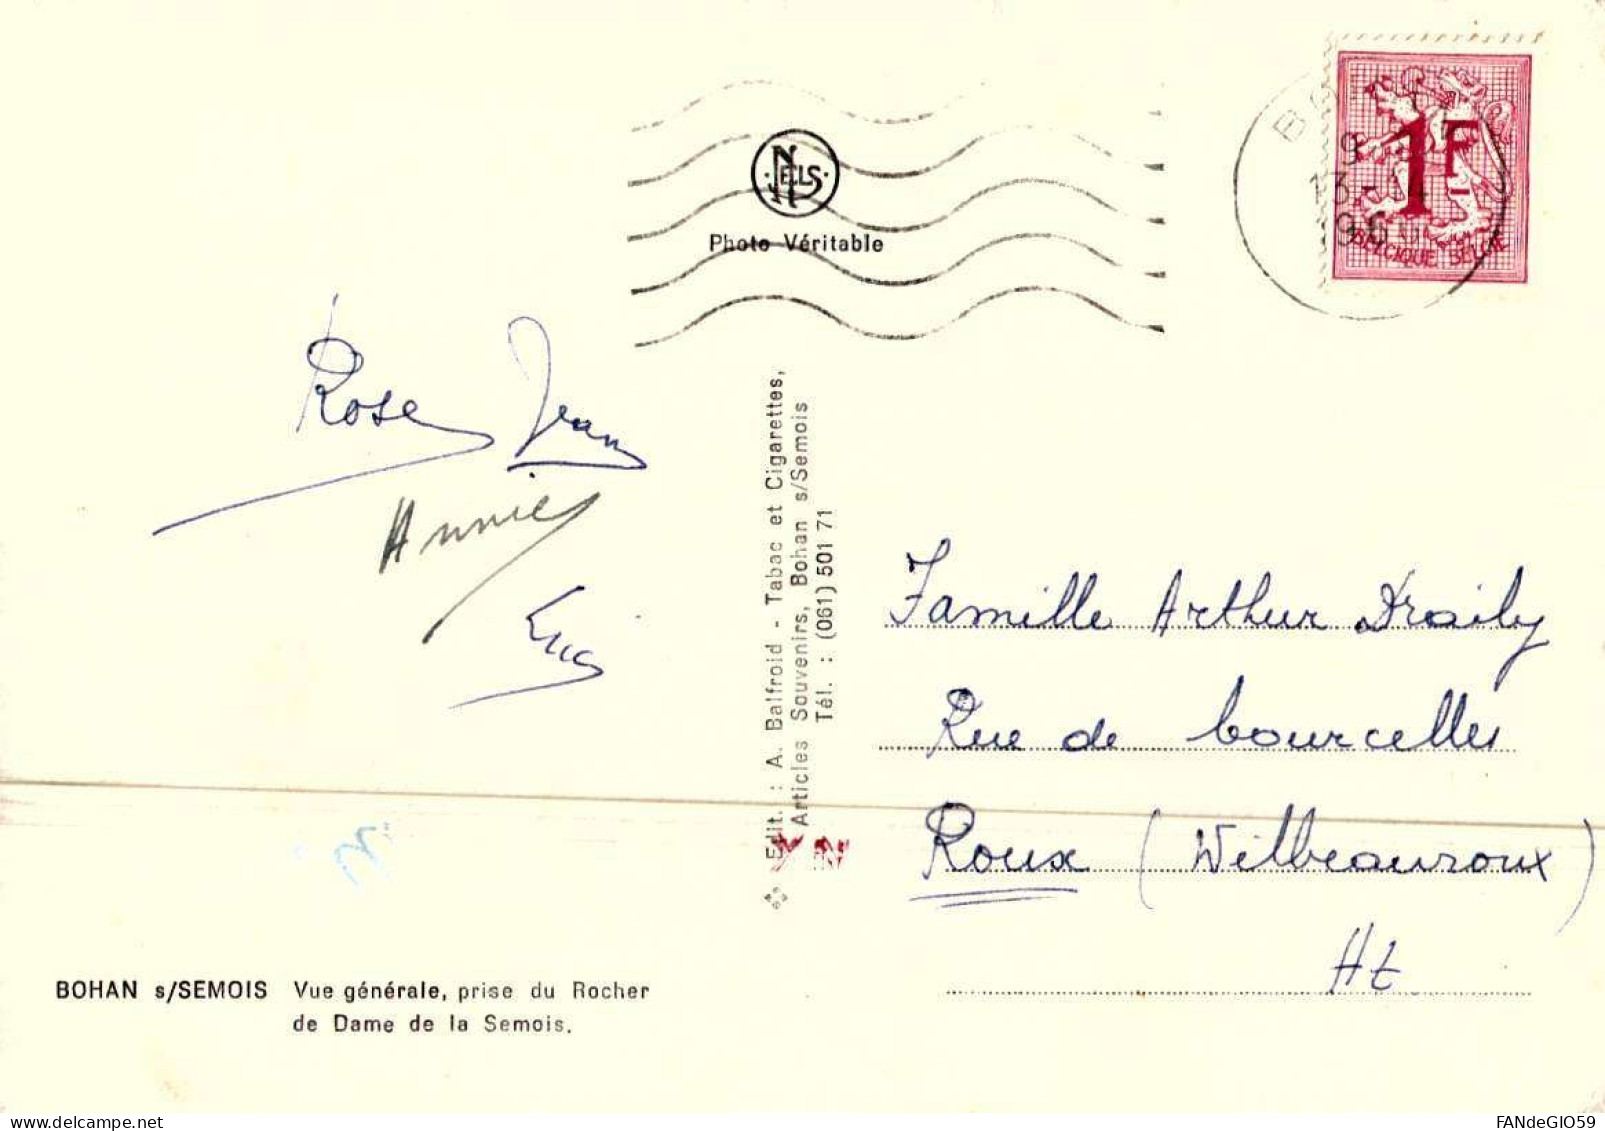 NELS
Photo Véritable
1F
BELGIQUE BELGIE
Rose Jean
Annie
Eric
Edit. : A. Balfroid - Tabac et Cigarettes,
Articles Souvenirs, Bohan s/Semois
Tél. : (061) 501 71
Famille Arthur Draily
Rue de bourcelles
Roux (Wilbeauroux)
Ht
BOHAN s/SEMOIS Vue générale, prise du Rocher
de Dame de la Semois.
www.delcampe.net
FANdeGIO59